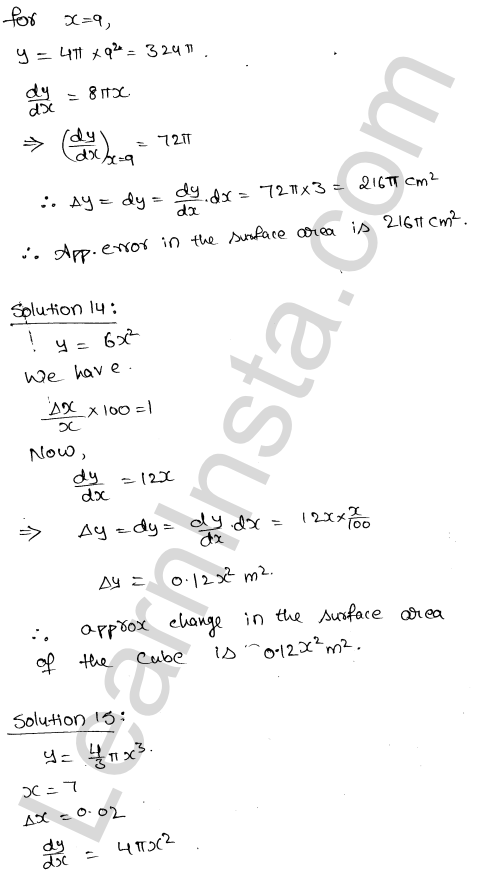 for x=9,
y = 4π × 9² = 324π.
dy/dx = 8πx
⇒ (dy/dx)x=9 = 72π
∴ Δy = dy = dy/dx . dx = 72π×3 = 216π cm²
∴ App. error in the surface area is 216π cm².
Solution 14:
y = 6x²
We have.
Δx/x × 100 = 1
Now,
dy/dx = 12x
⇒ Δy = dy = dy/dx . dx = 12x × x/100
Δy = 0.12x² m².
∴ approx change in the surface area
of the cube is 0.12x² m².
Solution 15:
y = 4/3 πx³.
x = 7
Δx = 0.02
dy/dx = 4πx².
LearnInsta.com